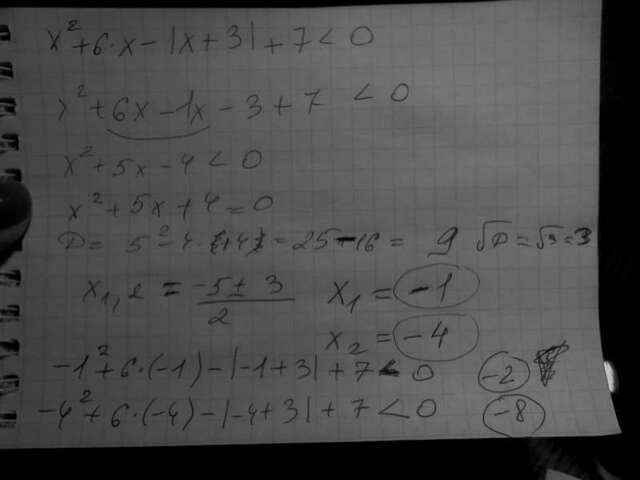 x² + 6·x - |x + 3| + 7 < 0
x² + 6x - 1x - 3 + 7 < 0
x² + 5x - 4 < 0
x² + 5x + 4 = 0
D = 5² - 4 · 4 = 25 - 16 = 9 √D = √9 = 3
x₁,₂ = (-5 ± 3)/2 x₁ = -1
x₂ = -4
-1² + 6·(-1) - |-1 + 3| + 7 < 0 -2
-4² + 6·(-4) - |-4 + 3| + 7 < 0 -8